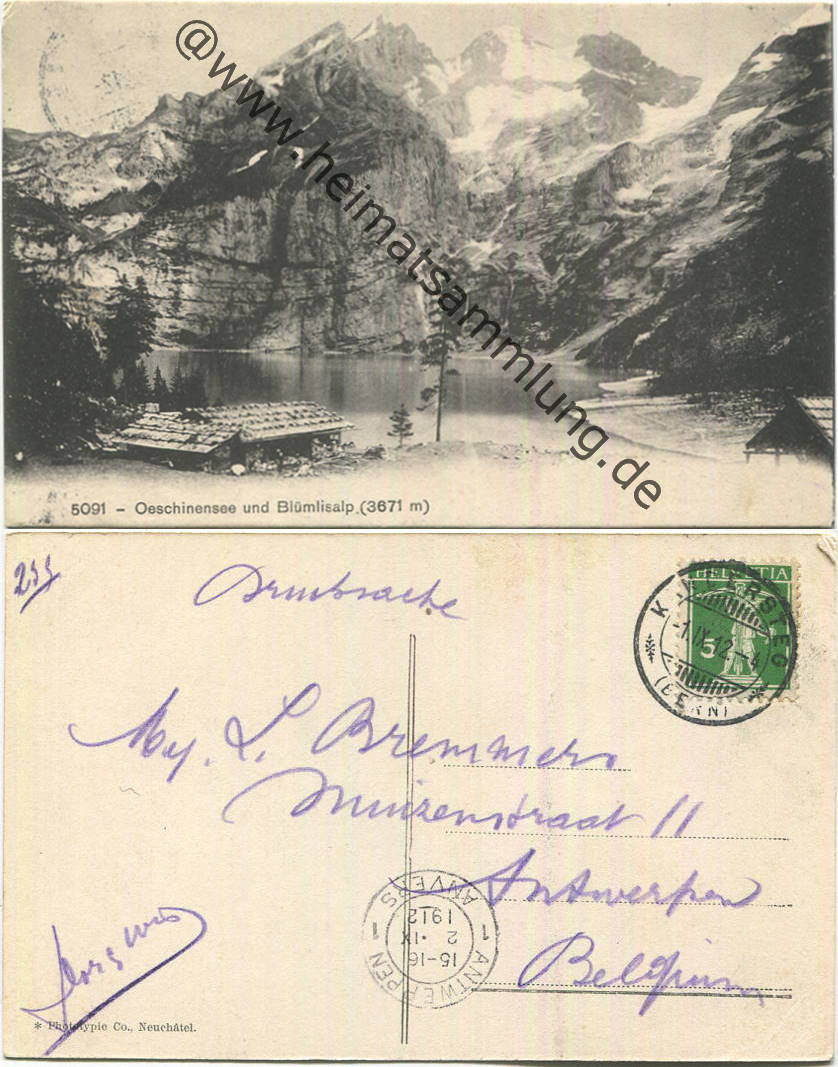 @www.heimatsammlung.de
5091 – Oeschinensee und Blümlisalp (3671 m)
Drucksache
HELVETIA
5
KANDERSTEG
-1.IX.12.-4
(BERN)
My. L. Bremmers
Muizenstraat 11
Antwerpen
Belgium
1 ANTWERPEN 1 ANVERS
15-16
2 · IX
1912
* Phototypie Co., Neuchâtel.